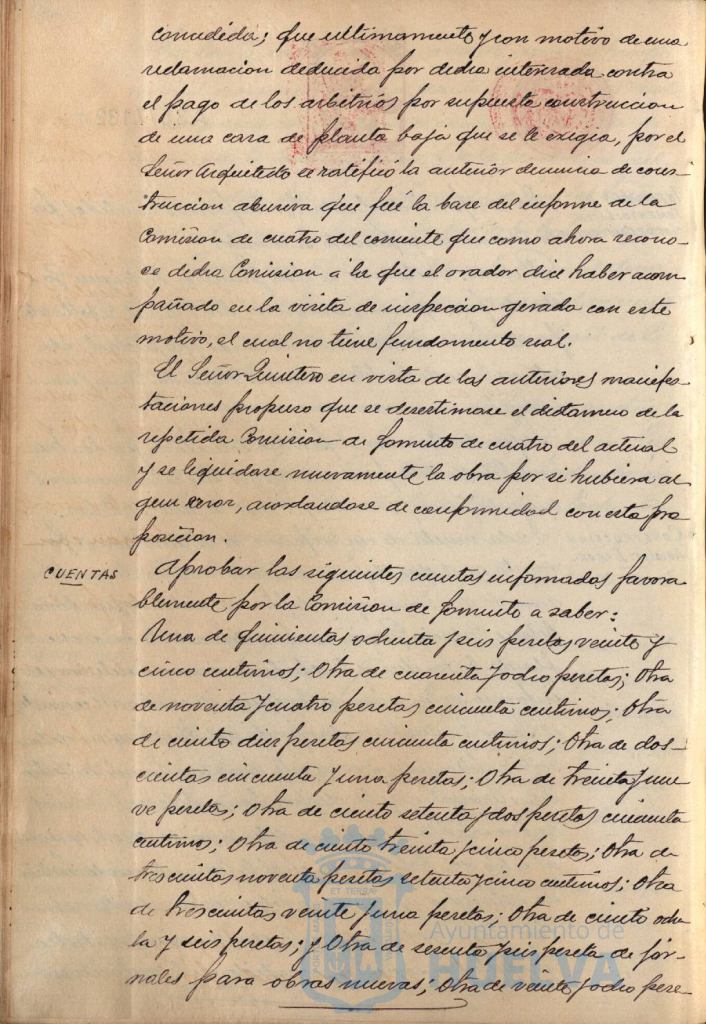 concedida; que ultimamente y con motivo de una
reclamacion deducida por dicha interesada contra
el pago de los arbitrios por supuesta construccion
de una casa de planta baja que se le exigia, por el
Señor Arquitecto se ratificó la anterior denuncia de cons-
truccion abusiva que fué la base del informe de la
Comision de cuatro del corriente que como ahora recono-
ce dicha Comision á la que el orador dice haber acom
pañado en la visita de inspeccion girada con este
motivo, el cual no tiene fundamento real.
El Señor Quintero en vista de las anteriores manifes-
taciones propuso que se desestimase el dictamen de la
repetida Comision de fomento de cuatro del actual
y se liquidase nuevamente la obra por si hubiera al
gun error, acordandose de conformidad con esta pro
posicion.
CUENTAS
Aprobar las siguientes cuentas informadas favora
blemente por la Comision de fomento a saber:
Una de quinientas ochenta y seis pesetas veinte y
cinco centimos; Otra de cuarenta y ocho pesetas; Otra
de noventa y cuatro pesetas cincuenta centimos; Otra
de ciento diez pesetas cincuenta centimos; Otra de dos-
cientas cincuenta y una pesetas; Otra de treinta y nue
ve pesetas; Otra de ciento setenta y dos pesetas cincuenta
centimos; Otra de ciento treinta y cinco pesetas; Otra de
trescientas noventa pesetas setenta y cinco centimos; Otra
de trescientas veinte y una pesetas; Otra de ciento oche
ta y seis pesetas; y Otra de sesenta y seis peseta de jor-
nales para obras nuevas; Otra de veinte y ocho pese-
Ayuntamiento de
HUELVA